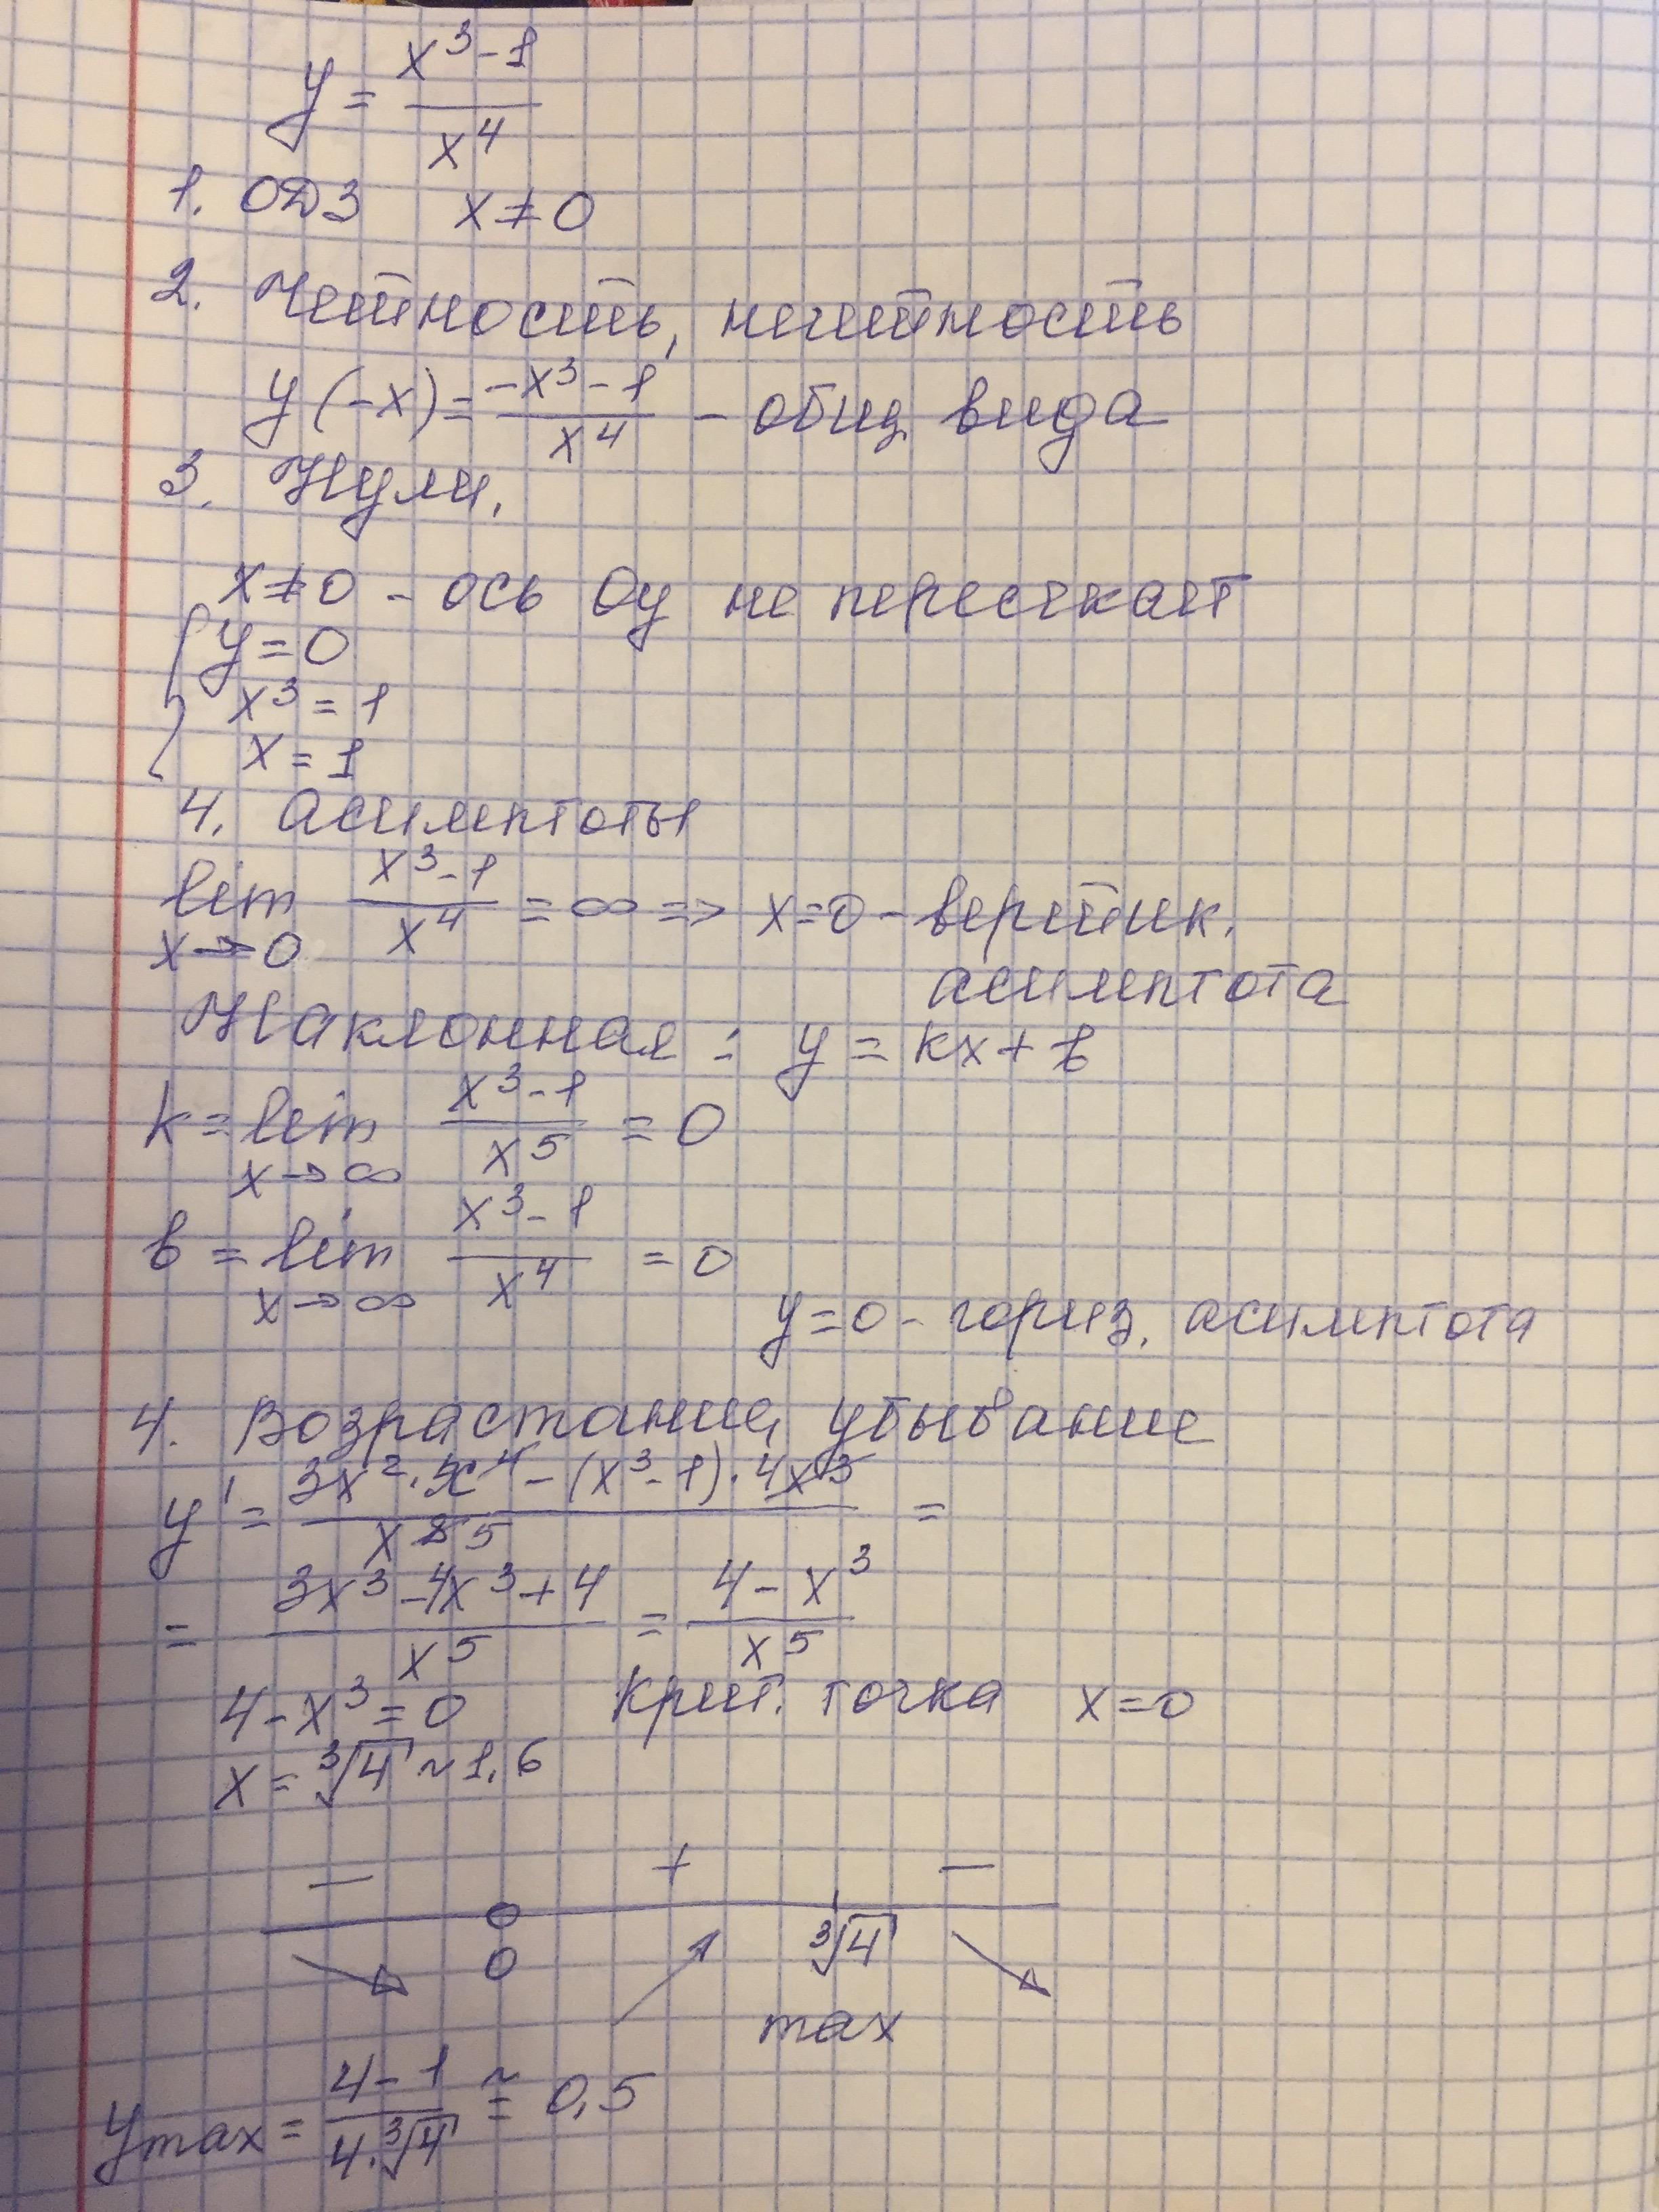 y = (x³ - 1) / x⁴
1. ОДЗ x ≠ 0
2. Четность, нечетность
y(-x) = (-x³ - 1) / x⁴ - общ. вида
3. Нули.
x ≠ 0 - ось Oy не пересекает
{ y = 0
x³ = 1
x = 1
4. Асимптоты
lim x→0 (x³ - 1) / x⁴ = ∞ => x = 0 - вертик.
асимптота
Наклонная : y = kx + b
k = lim x→∞ (x³ - 1) / x⁵ = 0
b = lim x→∞ (x³ - 1) / x⁴ = 0
y = 0 - гориз. асимптота
4. Возрастание, убывание
y' = (3x² · x⁴ - (x³ - 1) · 4x³) / x⁸ ⁵ =
= (3x³ - 4x³ + 4) / x⁵ = (4 - x³) / x⁵
4 - x³ = 0 Крит. точка x = 0
x = ³√4 ~ 1,6
- + -
0 ³√4
max
y max = (4 - 1) / (4 · ³√4) ≈ 0,5